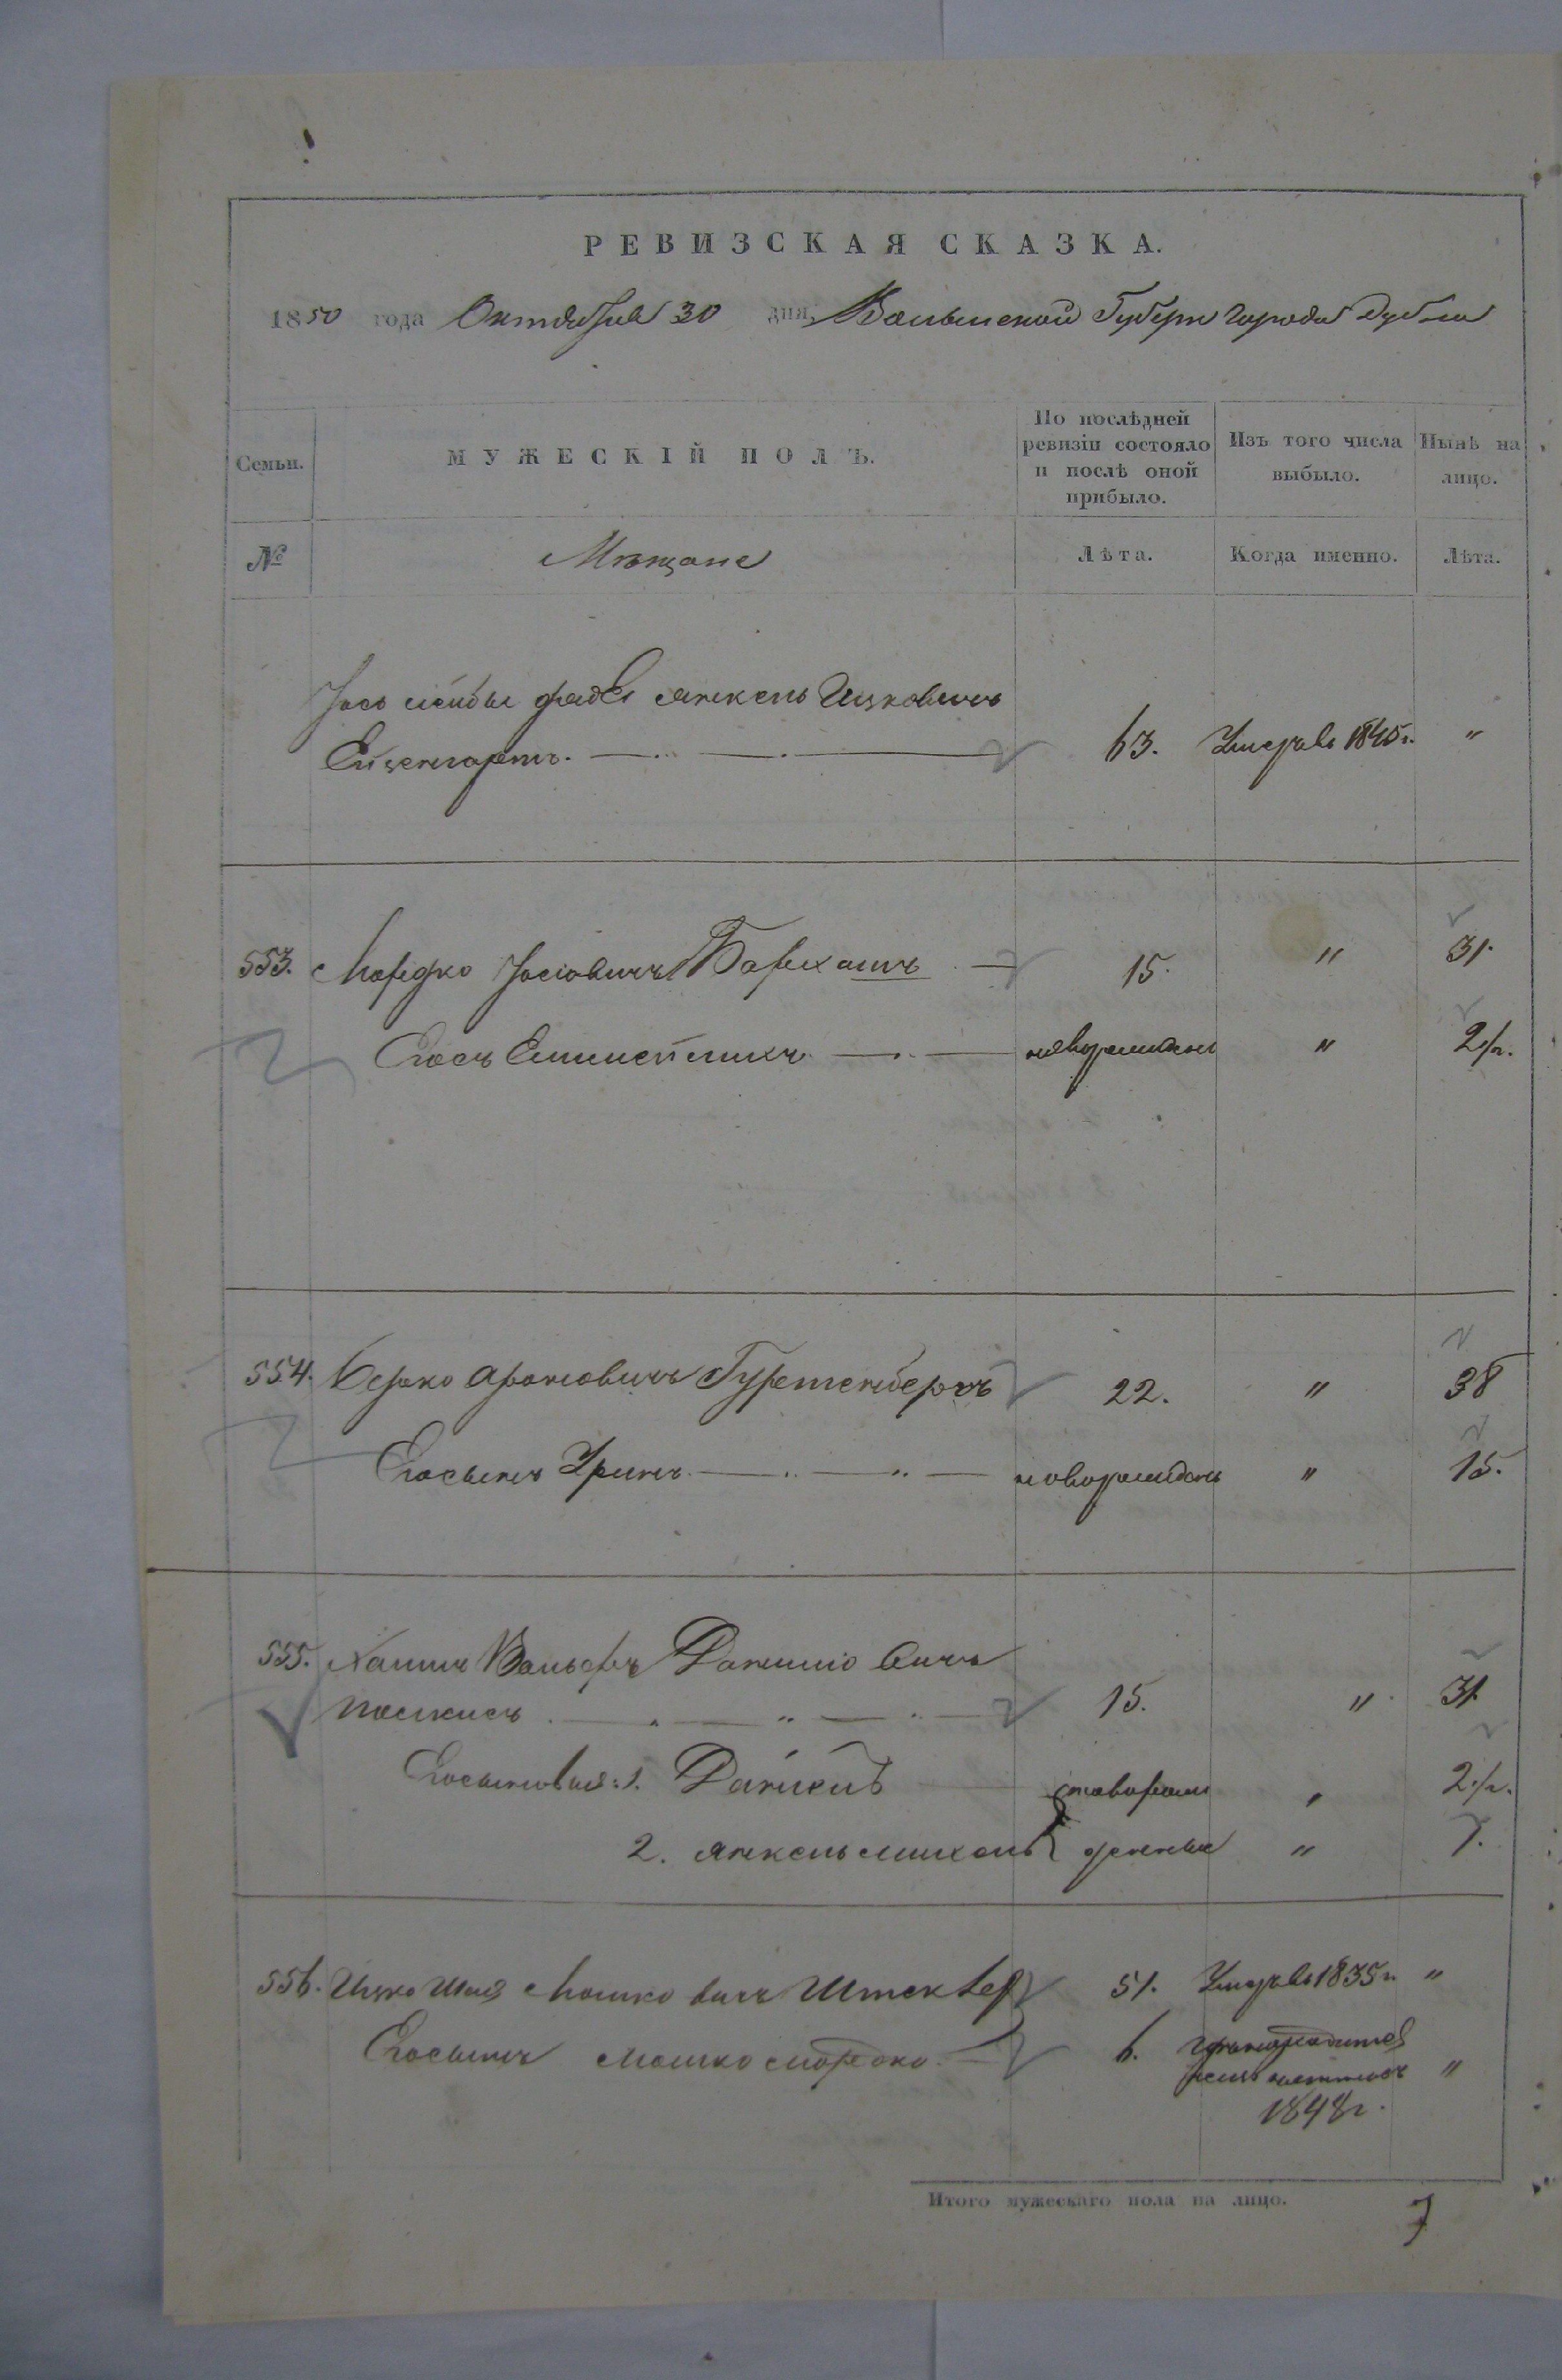 РЕВИЗСКАЯ СКАЗКА.
1850 года Октября 30 дня, Волынской Губерн города Дубна
Семьи.
МУЖЕСКІЙ ПОЛЪ.
По послѣдней ревизіи состояло и послѣ оной прибыло.
Изъ того числа выбыло.
Нынѣ на лицо.
№
Мѣщане
Лѣта.
Когда именно.
Лѣта.
Янкель Ицковичъ
63. Умеръ въ 1845г. "
553. Мордко Іосіовичъ 15. " 31.
новорожденъ " 2/г.
554. Берко Ароновичъ Гуретенбергъ 22. " 38
Его сынъ Уринъ новорожденъ " 15.
555. Хаимъ Вольфъ Даниліовичъ
15. " 31
Его сыновья: 1. Даніель новорож " 2/г.
2. Янкель Михель денные " 7.
556. Ицко Шая Мошковичъ Штеклер 51. Умеръ въ 1835г. "
Его сынъ Мошко Мордко 6.
1848г. "
Итого мужескаго пола на лицо. 7